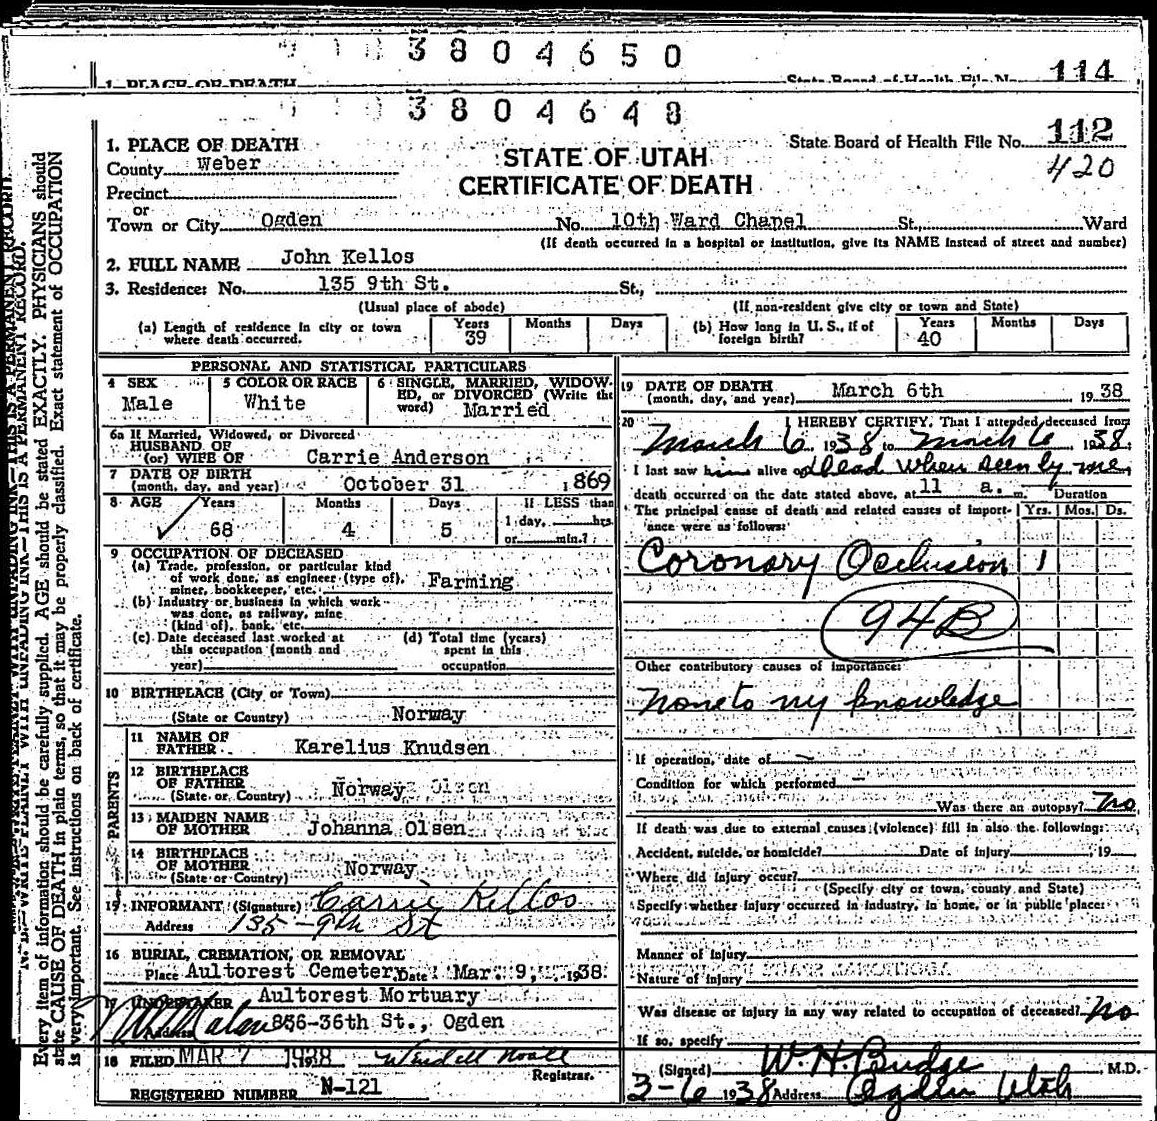 3804650
1. PLACE OF DEATH State Board of Health File No. 114
3804648
1. PLACE OF DEATH State Board of Health File No. 112
County Weber STATE OF UTAH 420
Precinct CERTIFICATE OF DEATH
or
Town or City Ogden No. 10th Ward Chapel St., Ward
(If death occurred in a hospital or institution, give its NAME instead of street and number)
2. FULL NAME John Kellos
3. Residence: No. 135 9th St. St.,
(Usual place of abode) (If non-resident give city or town and State)
(a) Length of residence in city or town where death occurred. Years 39 Months Days
(b) How long in U. S., if of foreign birth? Years 40 Months Days
PERSONAL AND STATISTICAL PARTICULARS
4 SEX Male
5 COLOR OR RACE White
6 SINGLE, MARRIED, WIDOWED, or DIVORCED (Write the word) Married
6a If Married, Widowed, or Divorced
HUSBAND OF
(or) WIFE OF Carrie Anderson
7 DATE OF BIRTH
(month, day, and year) October 31 1869
8 AGE Years 68 Months 4 Days 5 If LESS than
1 day, hrs.
or min.?
9 OCCUPATION OF DECEASED
(a) Trade, profession, or particular kind
of work done, as engineer (type of),
miner, bookkeeper, etc. Farming
(b) Industry or business in which work
was done, as railway, mine
(kind of), bank, etc.
(c) Date deceased last worked at
this occupation (month and
year)
(d) Total time (years)
spent in this
occupation
10 BIRTHPLACE (City or Town)
(State or Country) Norway
PARENTS
11 NAME OF
FATHER Karelius Knudsen
12 BIRTHPLACE
OF FATHER
(State or Country) Norway Olsen
13 MAIDEN NAME
OF MOTHER Johanna Olsen
14 BIRTHPLACE
OF MOTHER
(State or Country) Norway
15 INFORMANT (Signature) Carrie Kellos
Address 135-9th St
16 BURIAL, CREMATION, OR REMOVAL
Place Aultorest Cemetery Date Mar. 9, 1938
17 UNDERTAKER Aultorest Mortuary
Address 836-36th St., Ogden
18 FILED MAR 7 1938 Wendell Noall
Registrar.
REGISTERED NUMBER N-121
19 DATE OF DEATH
(month, day, and year) March 6th 1938
20 I HEREBY CERTIFY, That I attended deceased from
March 6, 1938 to March 6, 1938
I last saw him alive on dead when seen by me,
death occurred on the date stated above, at 11 a. m. Duration
The principal cause of death and related causes of importance were as follows: Yrs. Mos. Ds.
Coronary Occlusion 1
94B
Other contributory causes of importance:
None to my knowledge
If operation, date of
Condition for which performed
Was there an autopsy? No
If death was due to external causes (violence) fill in also the following:
Accident, suicide, or homicide? Date of injury , 19
Where did injury occur?
(Specify city or town, county and State)
Specify whether injury occurred in industry, in home, or in public place:
Manner of Injury
Nature of Injury
Was disease or injury in any way related to occupation of deceased? No
If so, specify
(Signed) W. H. Budge M.D.
3-6 1938 Address Ogden Utah
Every item of information should be carefully supplied. AGE should be stated EXACTLY. PHYSICIANS should
state CAUSE OF DEATH in plain terms, so that it may be properly classified. Exact statement of OCCUPATION
is very important. See instructions on back of certificate.
N. B.—WRITE PLAINLY WITH UNFADING INK—THIS IS A PERMANENT RECORD.